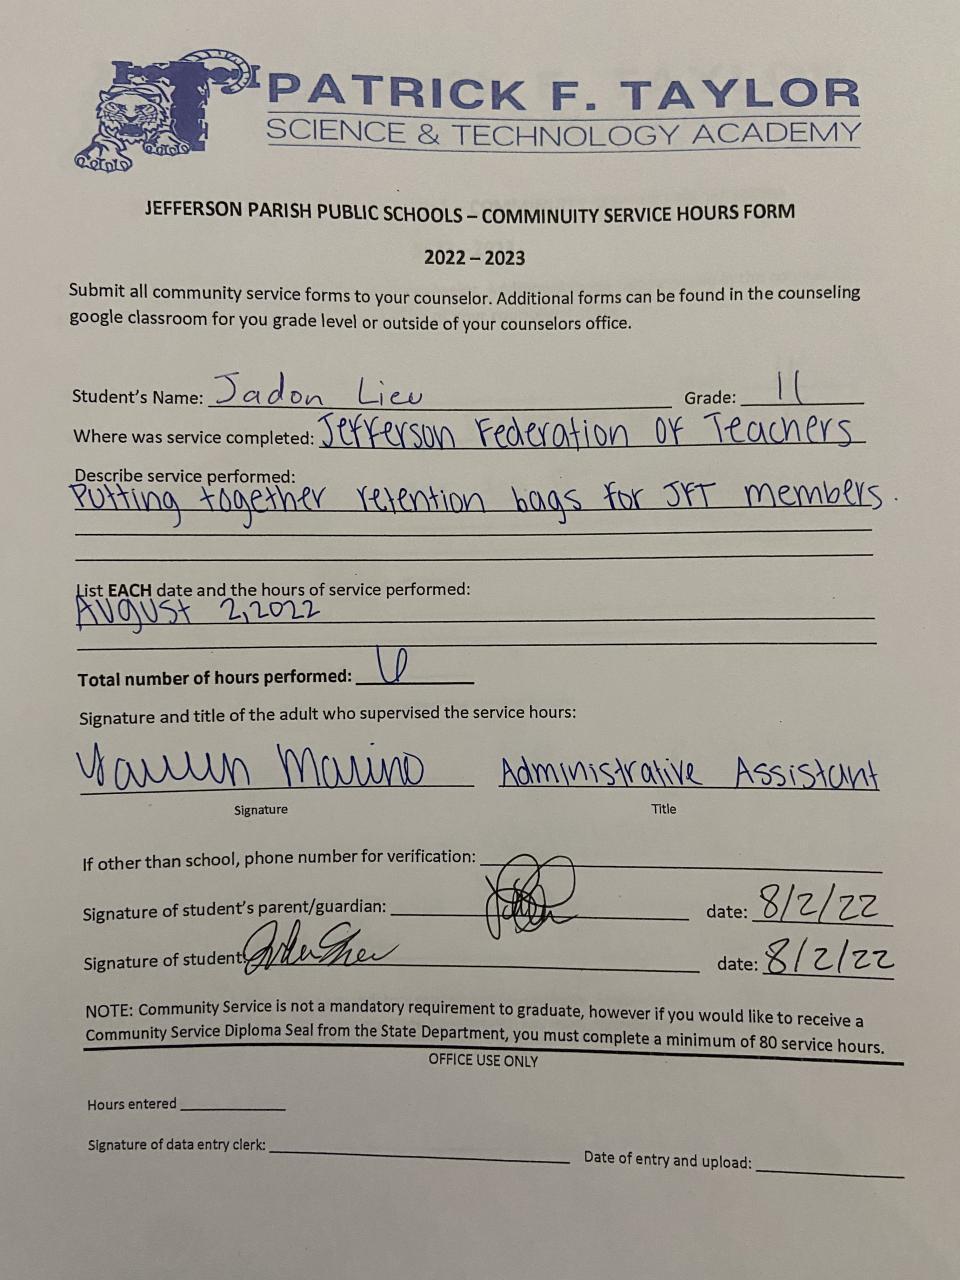 PATRICK F. TAYLOR
SCIENCE & TECHNOLOGY ACADEMY
JEFFERSON PARISH PUBLIC SCHOOLS – COMMINUITY SERVICE HOURS FORM
2022 – 2023
Submit all community service forms to your counselor. Additional forms can be found in the counseling
google classroom for you grade level or outside of your counselors office.
Student's Name: Jadon Lieu Grade: 11
Where was service completed: Jefferson Federation of Teachers
Describe service performed:
Putting together retention bags for JFT members.
List EACH date and the hours of service performed:
August 2, 2022
Total number of hours performed: 6
Signature and title of the adult who supervised the service hours:
Lauren Marino Administrative Assistant
Signature Title
If other than school, phone number for verification:
Signature of student's parent/guardian: date: 8/2/22
Signature of student: date: 8/2/22
NOTE: Community Service is not a mandatory requirement to graduate, however if you would like to receive a
Community Service Diploma Seal from the State Department, you must complete a minimum of 80 service hours.
OFFICE USE ONLY
Hours entered
Signature of data entry clerk: Date of entry and upload: